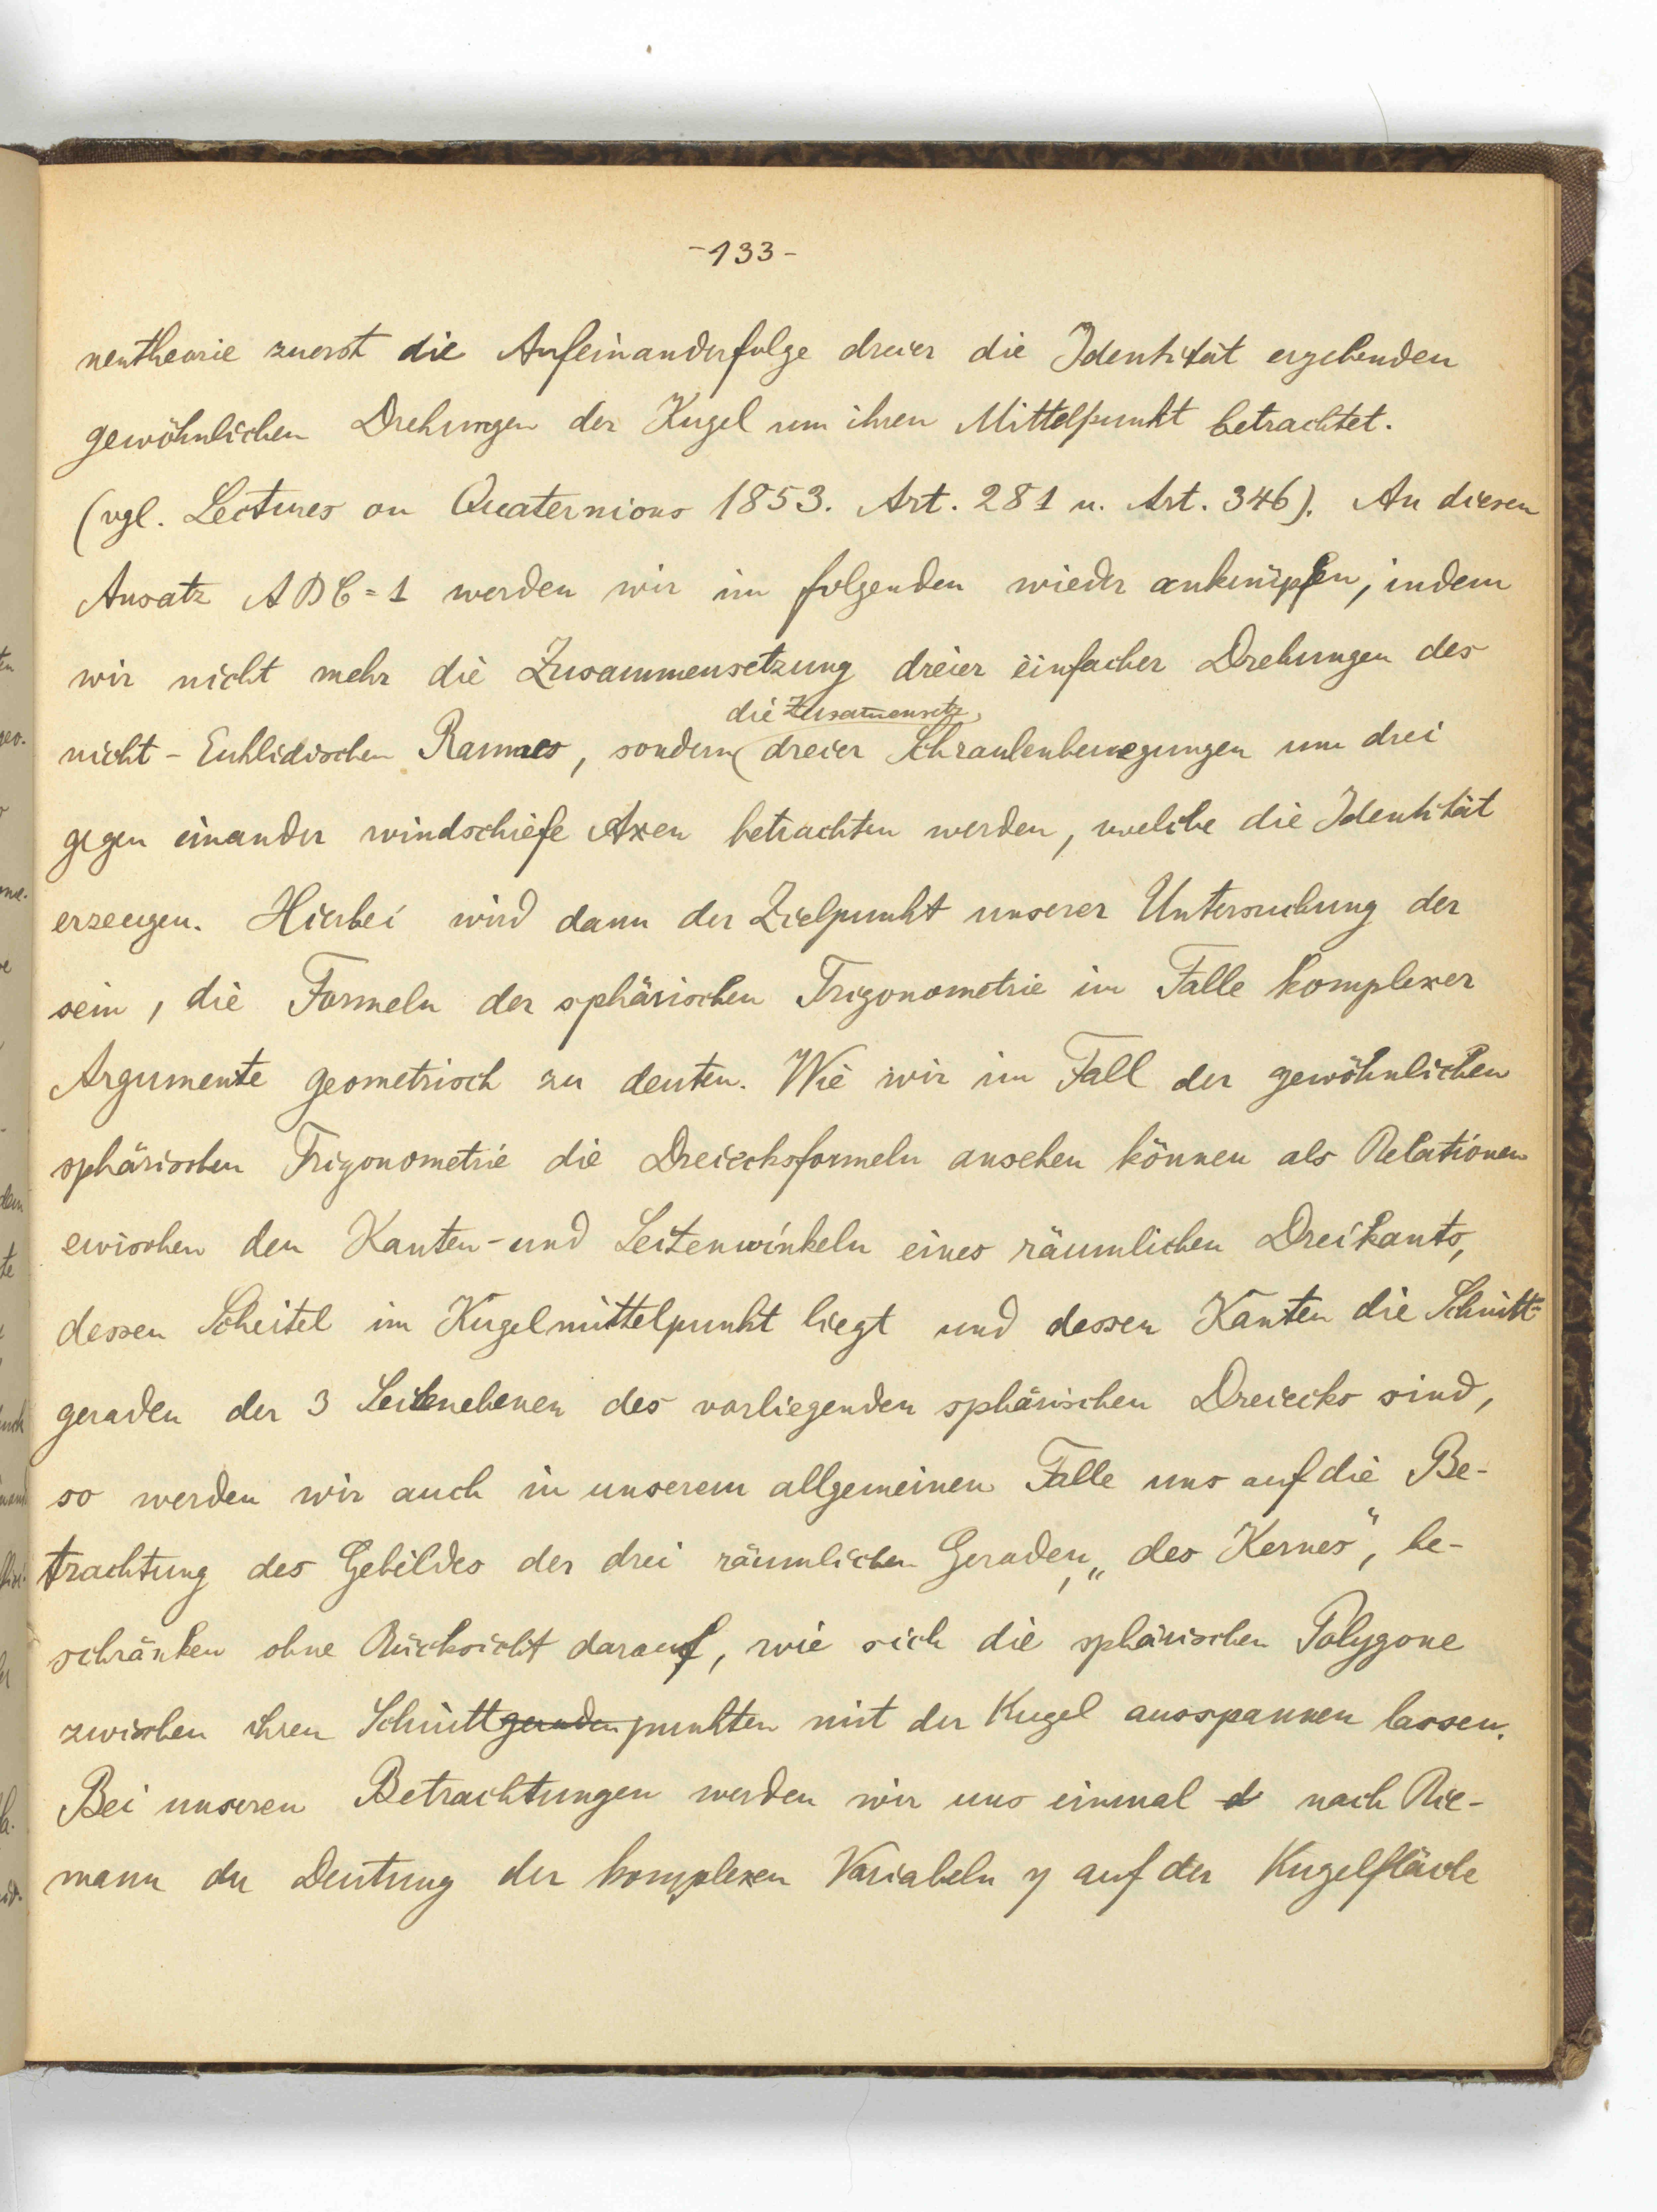 -133-
nentheorie zuerst die Aufeinanderfolge dreier die Identität ergebenden
gewöhnlichen Drehungen der Kugel um ihren Mittelpunkt betrachtet.
(vgl. Lectures on Quaternions 1853. Art. 281 u. Art. 346). An diesen
Ansatz ABC=1 werden wir im folgenden wieder anknüpfen, indem
wir nicht mehr die Zusammensetzung dreier einfacher Drehungen des
die Zusammensetz.
nicht-Euklidischen Raumes, sondern dreier Schraubenbewegungen um drei
gegen einander windschiefe Axen betrachten werden, welche die Identität
erzeugen. Hierbei wird dann der Zielpunkt unserer Untersuchung der
sein, die Formeln der sphärischen Trigonometrie im Falle komplexer
Argumente geometrisch zu deuten. Wie wir im Fall der gewöhnlichen
sphärischen Trigonometrie die Dreiecksformeln ansehen können als Relationen
zwischen den Kanten- und Seitenwinkeln eines räumlichen Dreikants,
dessen Scheitel im Kugelmittelpunkt liegt und dessen Kanten die Schnitt-
geraden der 3 Seitenebenen des vorliegenden sphärischen Dreiecks sind,
so werden wir auch in unserem allgemeinen Falle uns auf die Be-
trachtung des Gebildes der drei räumlichen Geraden, „des Kernes“, be-
schränken ohne Rücksicht darauf, wie sich die sphärischen Polygone
zwischen ihren Schnittgeradenpunkten mit der Kugel ausspannen lassen.
Bei unseren Betrachtungen werden wir uns einmal d nach Rie-
mann der Deutung der komplexen Variabeln η auf der Kugelfläche